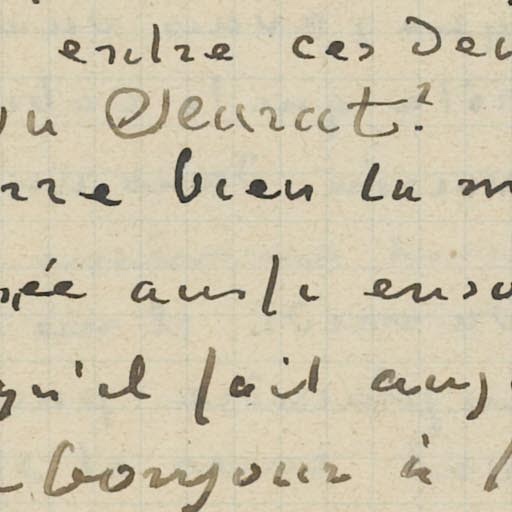 entre ces deu
u Seurat?
rre bien la m
ée aussi enso
qu'il fait auj
bonjour à